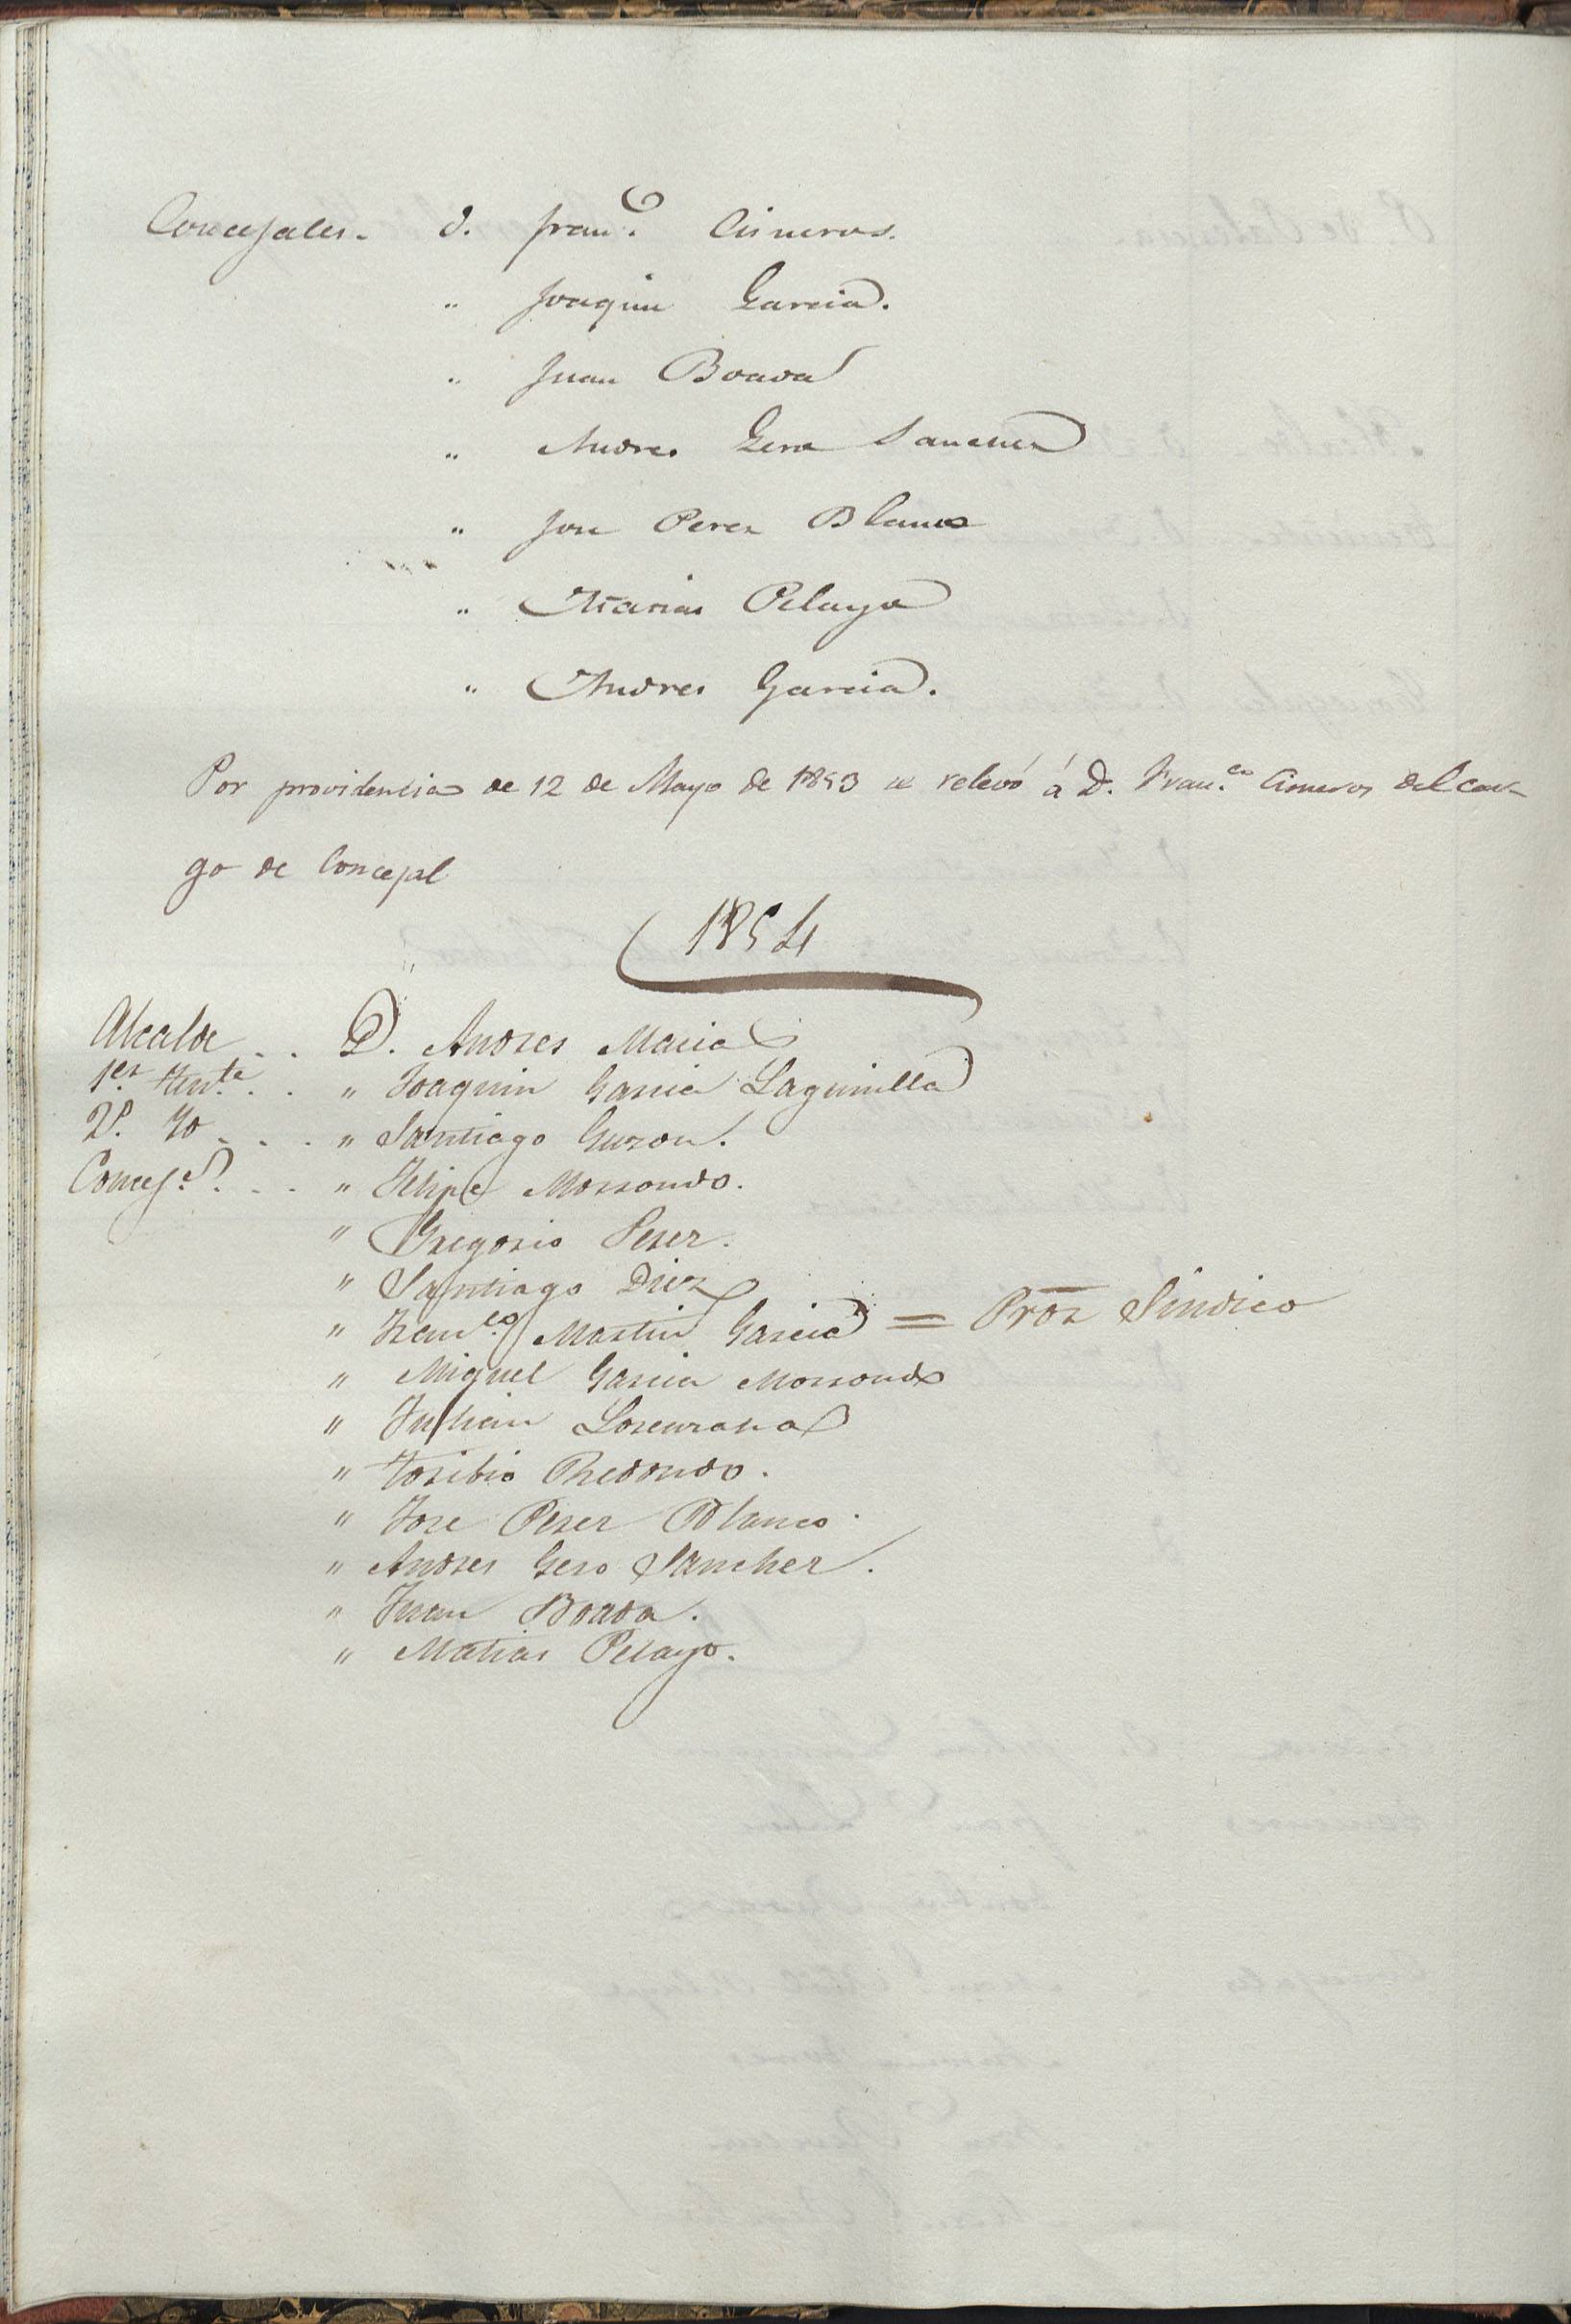 Concejales. D. Fran.co Cisneros.
" Joaquin Garcia.
" Juan Boada
" Andres Gero Sanchez
" Jose Perez Blanco
" Matias Pelayo
" Andres Garcia.
Por providencia de 12 de Mayo de 1853 se relevó á D. Fran.co Cisneros del car-
go de Concejal
1854
Alcalde . . D. Andres Macia
1.er Tente . . " Joaquin Garcia Lagunilla
2.º Yo . . . " Santiago Guzon.
Concej.s . . . " Felipe Morrondo.
" Gregorio Perez.
" Santiago Diez
" Fran.co Martin Garcia = Pror Sindico
" Miguel Garcia Morrondo
" Julian Lorenzana
" Toribio Redondo.
" Jose Perez Blanco.
" Andres Gero Sanchez.
" Juan Boada.
" Matias Pelayo.